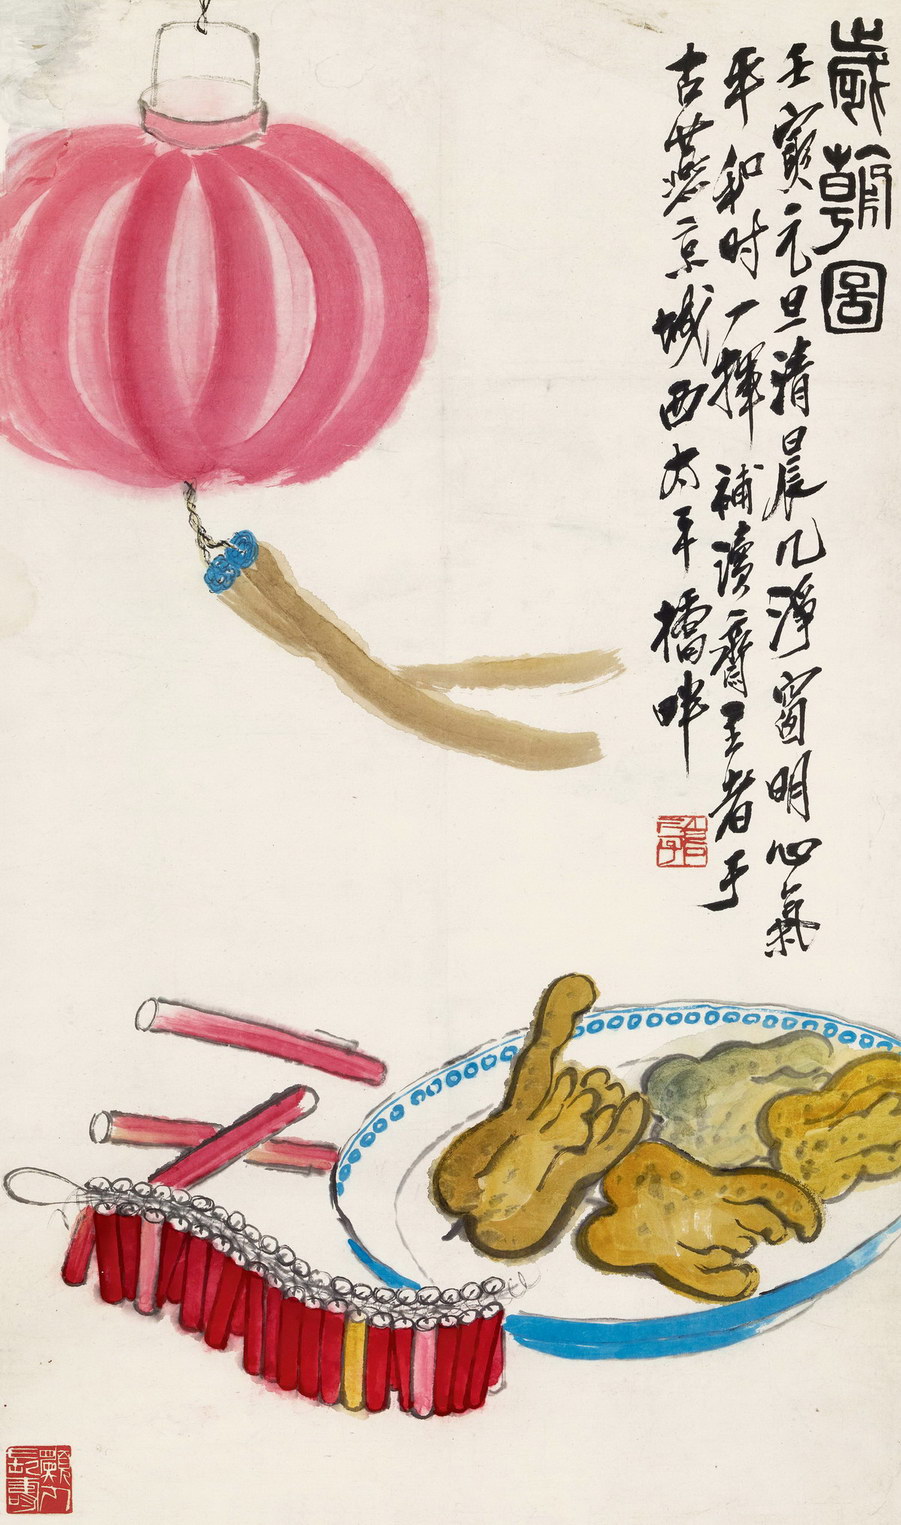 歲朝圖
壬寅元旦清晨几淨窗明心氣
平和时一揮補讀齋主者于
古燕京城西太平橋畔
願人長壽